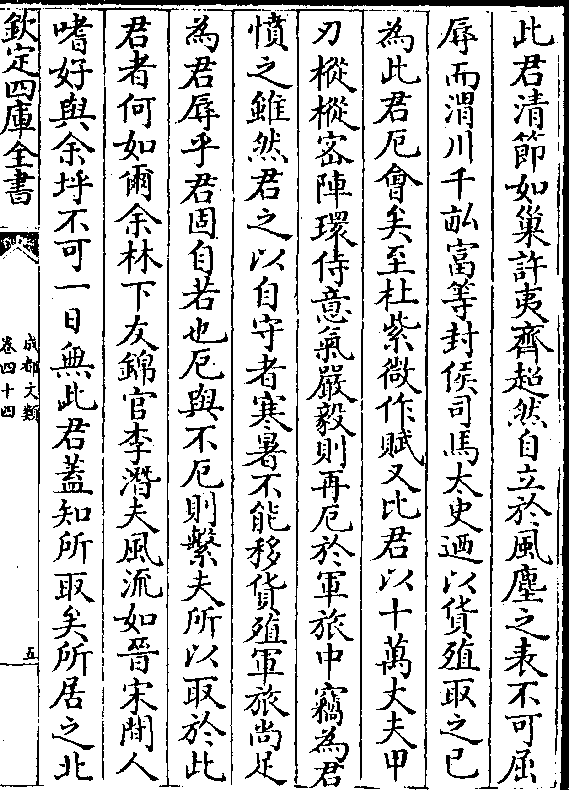 此君清節如巢許夷齊超然自立於風塵之表不可屈
辱而渭川千畝富等封侯司馬太史廼以貨殖取之已
為此君厄會矣至杜紫微作賦又比君以十萬丈夫甲
刃樅樅密陣環侍意氣嚴毅則再厄於軍旅中竊為君
憤之雖然君之以自守者寒暑不能移貨殖軍旅尚足
為君辱乎君固自若也厄與不厄則繫夫所以取於此
君者何如爾余林下友錦官李潛夫風流如晉宋間人
嗜好與余埒不可一日無此君蓋知所取矣所居之北
欽定四庫全書
成都文類
卷四十四
五